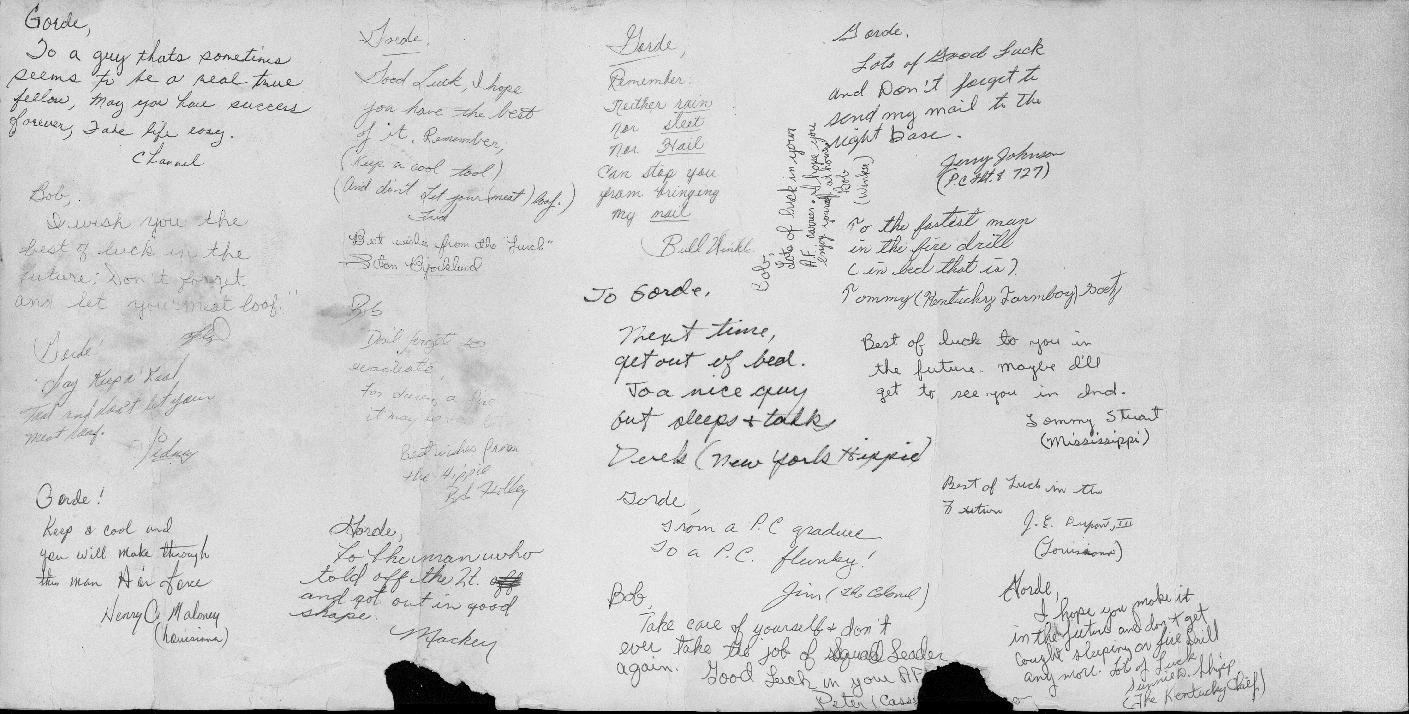 Gorde,
To a guy thats sometimes
seems to be a real true
fellow, May you have success
forever, Take life easy.
Channel
Bob,
I wish you the
best of luck in the
future. Don't forget
and let your meat loaf."
Gorde!
Say Keep a Real
and don't let your
meat loaf.
Sidney
Gorde!
Keep a cool and
you will make through
this man Air Force
Henry C. Maloney
(Louisiana)
Gorde,
Good Luck, I hope
you have the best
of it. Remember,
(Keep a cool tool)
(And don't let your (meat) loaf.)
"Best wishes from the "Lurch"
Bob
Don't forget to
evacuate,
it may
Best wishes from
the Hippie
Bob Holley
Gorde,
To the man who
told off the Lt.
and got out in good
shape.
Mackey
Gorde,
Remember:
Neither rain
nor sleet
nor Hail
Can stop you
from bringing
my mail
Bull Winkl
To Gorde,
Next time,
get out of bed.
To a nice guy
but sleeps + talk
Derek (New York Hippie)
Gorde,
From a P.C graduee
To a P.C. flunky!
Jim (The Colonel)
Bob,
Take care of yourself + don't
ever take the job of Squad Leader
again. Good Luck in your AF
Peter (Cass
Bob,
Lots of luck in your
A.F. carrer. I hope you
enjoy yourself at
Bob
(Winker)
Gorde,
Lots of Good Luck
and Don't forget to
send my mail to the
right base.
Jerry Johnson
(P.C. Flt. 727)
To the fastest man
in the fire drill
(in bed that is).
Tommy (Kentucky Farmboy)
Best of luck to you in
the future. maybe I'll
get to see you in Ind.
Tommy Stuart
(Mississippi)
Best of Luck in the
J.E. Dupont, III
(Louisiana)
Gorde,
I hope you make it
in the future and don't get
caught sleeping or fire drill
any more. Lot of Luck
(The Kentucky Chief.)